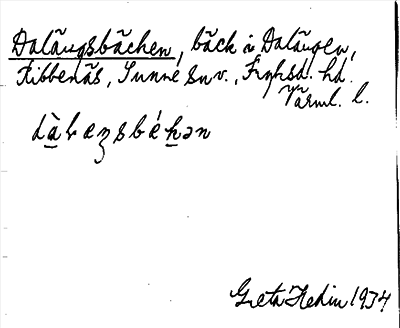 Dalängsbäcken, bäck i Dalängen,
Ribbenäs, Sunne snv., Fryksd. hd.
Värml. l.
Greta Hedin 1934